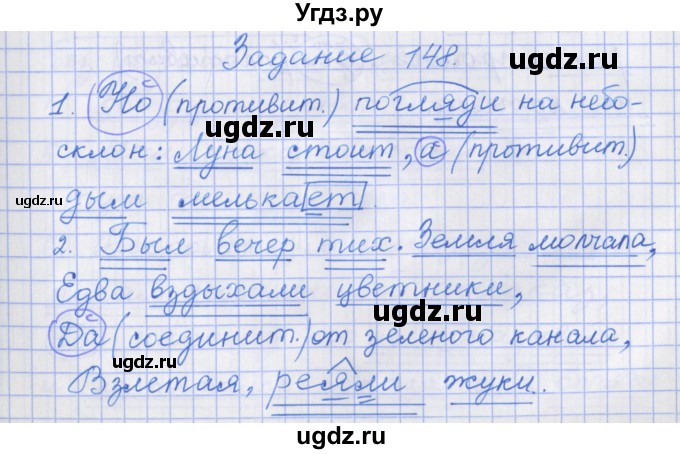 Угдз.ру
Задание 148.
ugdz.ru
1. Но (противит.) погляди на небо-
ugdz.ru
ugdz.ru
склон: Луна стоит, а (противит.)
ugdz.ru
дым мелька[ет].
2. Был вечер тих. Земля молчала,
Едва вздыхали цветники,
ugdz.ru
Да (соединит.) от зеленого канала,
ugdz.ru
ugdz.ru
Взлетая, реяли жуки.
ugdz.ru